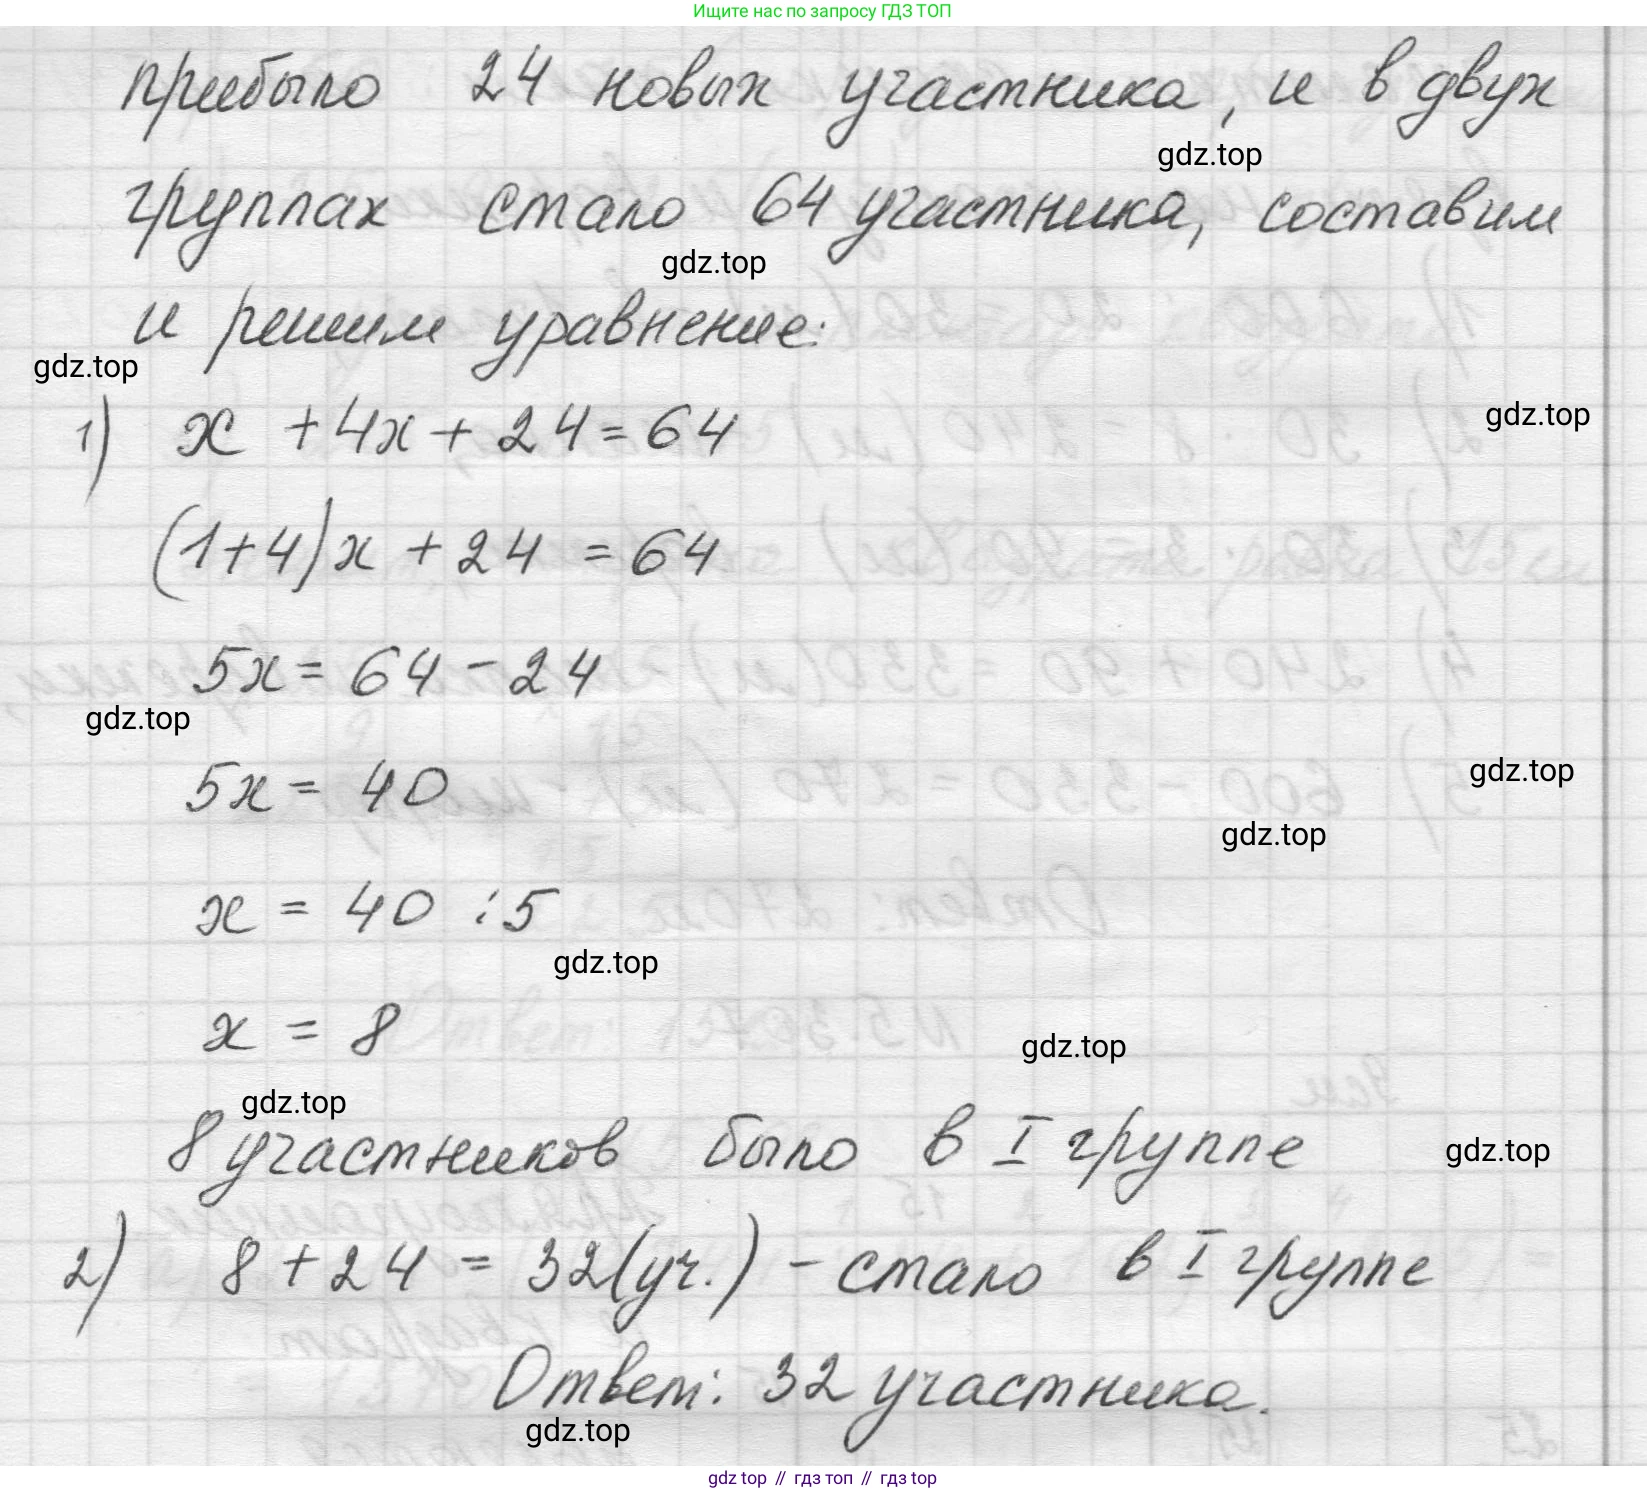 Ищите нас по запросу ГДЗ ТОП
прибыло 24 новых участника, и в двух
gdz.top
группах стало 64 участника, составим
gdz.top
и решим уравнение:
gdz.top
1) x + 4x + 24 = 64
gdz.top
(1+4)x + 24 = 64
5x = 64 - 24
gdz.top
5x = 40
gdz.top
gdz.top
x = 40 : 5
gdz.top
x = 8
gdz.top
gdz.top
8 участников было в I группе
gdz.top
2) 8 + 24 = 32 (уч.) - стало в I группе
Ответ: 32 участника.
gdz.top
gdz top // гдз топ // гдз top